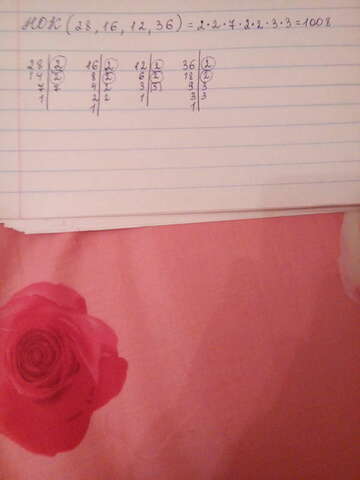 НОК (28, 16, 12, 36) = 2·2·7·2·2·3·3=1008
28 2 16 2 12 2 36 2
14 2 8 2 6 2 18 2
7 7 4 2 3 3 9 3
1 2 2 1 3 3
1 1